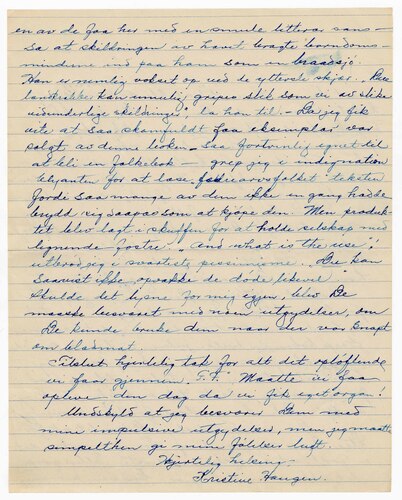 en av de faa her med en smule litterær sans –
sa at skildringen av havet bragte barndoms-
minderne ind paa ham som en braadsjø.
Han er nemlig vokset op ved de ytterste skjær.
kan umulig gripes slik som vi av slike
vidunderlige skildringer, la han til. – Da jeg fik
vite at saa skamfuldt faa eksemplar var
solgt av denne boken – saa fortrinlig egnet til
at bli en folkebok – grep jeg i indignation
blyanten for at læse teksten
fordi saa mange av dem ikke en gang hadde
brydd sig saapas som at kjøpe den. Men produk-
tet blev lagt i skuffen for at holde selskap med
lignende fostre. "And what is the use",
utbrød jeg i svarteste pessimisme. De kan
saavist ikke opvække de døde likevel.
Skulde det lysne for mig igjen, blev De
maaske besværet med noen utgydelser, om
De kunde bruke dem naar der var knapt
om bladmat.
Tilslut hjertelig tak for alt det opløftende
vi faar gjennem "T.T." Maatte vi faa
opleve den dag da vi fik eget organ!
Undskyld at jeg besværer Dem med
mine impulsive utgydelser, men jeg maatte
simpelthen gi mine følelser luft.
Hjertelig hilsing
Kristine Haugen.